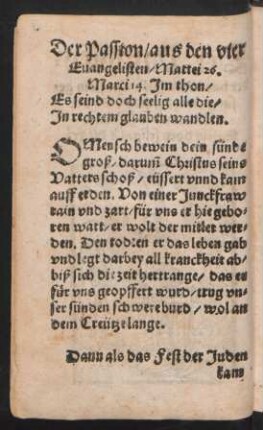 Der Passion/aus den vier
Euangelisten/Mattei 26.
Marci 14. Im thon/
Es seind doch seelig alle die/
In rechtem glauben wandlen.
O Mensch bewein dein sünde
groß/ darumb Christus seins
Vatters schoß/ eüssert vnnd kam
auff erden. Von einer Junckfraw
rain vnd zart/ für vns er hie gebo-
ren wart/ er wolt der mitler wer-
den. Den todten er das leben gab
vnd legt darbey all kranckheit ab/
biß sich die zeit hertrange/ das er
für vns geopffert wurd/ trug vn-
ser sünden schwere burd/ wol an
dem Creütze lange.
Dann als das Fest der Juden
kam